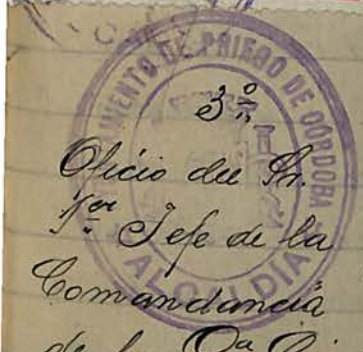 AYUNTAMIENTO DE PRIEGO DE CÓRDOBA
ALCALDIA
3º
Oficio del Sr.
1er Jefe de la
Comandancia
de la